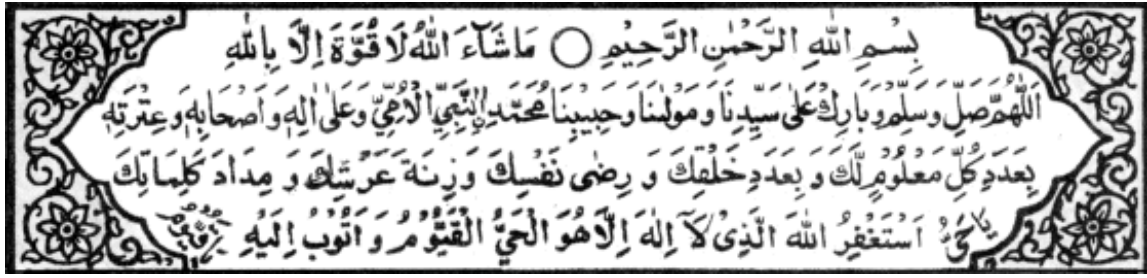 بِسْمِ اللهِ الرَّحْمٰنِ الرَّحِيْمِ ○ مَاشَآءَ اللهُ لَا قُوَّةَ اِلَّا بِاللهِ
اَللّٰهُمَّ صَلِّ وَسَلِّمْ وَبَارِكْ عَلٰى سَيِّدِنَا وَمَوْلٰىنَا وَحَبِيْبِنَا مُحَمَّدِ ۨالنَّبِيِّ الْاُمِّيِّ وَعَلٰى اٰلِهٖ وَاَصْحَابِهٖ وَعِتْرَتِهٖ
بِعَدَدِ كُلِّ مَعْلُوْمٍ لَّكَ وَ بِعَدَدِ خَلْقِكَ وَ رِضٰى نَفْسِكَ وَزِنَةَ عَرْشِكَ وَ مِدَادَ كَلِمَاتِكَ
اَسْتَغْفِرُ اللهَ الَّذِىْ لَآ اِلٰهَ اِلَّا هُوَ الْحَيُّ الْقَيُّوْمُ وَ اَتُوْبُ اِلَيْهِ يَا حَيُّ يَا قَيُّوْمُ